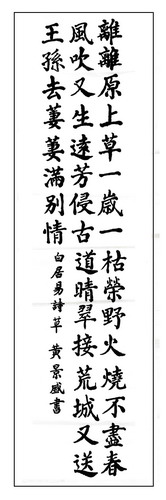 離離原上草一歲一枯榮野火燒不盡春
風吹又生遠芳侵古道晴翠接荒城又送
王孫去萋萋滿別情
白居易詩草 黃景盛書